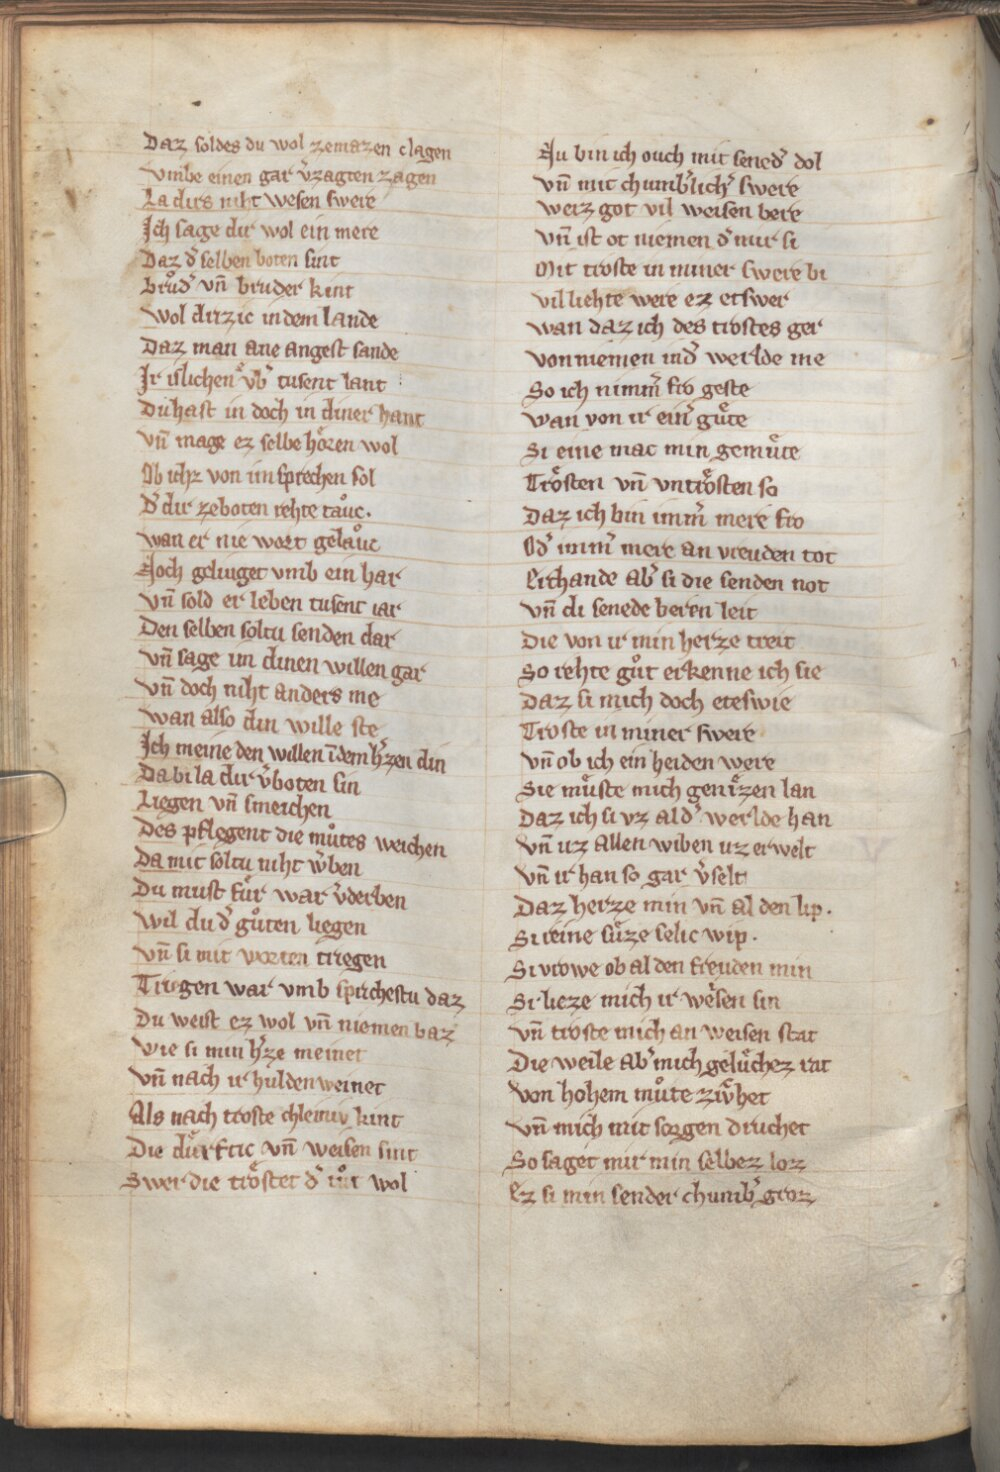 Daz soldes du wol zemazen clagen
Vmbe einen gar v̾zagten zagen
La dirs niht wesen swere
Ich sage dir wol ein mere
Daz d̾ selben boten sint
bruͦd̾ vn̄ bruder kint
Wol dirzic in dem lande
Daz man ane angest sande
Ir islichen vb̾ tusent lant
Du hast in doch in diner hant
Vn̄ mage ez selbe hoͤren wol
Ob ichz von im sprechen sol
D̾ dir zeboten rehte tauͦc.
wan er nie wort gelauͦc
Noch geliuget vmb ein har
Vn̄ sold er leben tusent iar
Den selben soltu senden dar
Vn̄ sage im dinen willen gar
Vn̄ doch niht anders me
wan also din wille ste
Ich meine den willen īdem h̾zen din
Da bi la dir v̾boten sin
Liegen vn̄ smeichen
Des pflegent die muͦtes weichen
Da mit soltu niht w̾ben
Du must fuͤr war v̾derben
Wil du d̾ guͦten liegen
Vn̄ si mit worten triegen
Triegen war vmb sprichestu daz
Du weist ez wol vn̄ niemen baz
Wie si min h̾ze meinet
Vn̄ nach ir hulden weinet
Als nach troste chleiniv kint
Die duͤrftic vn̄ weisen sint
Swer die troͤstet d̾ tuͦt wol
Nu bin ich ouch mit sened̾ dol
Vn̄ mit chumb̾lich̾ swere
Weiz got vil weisen bere
Vn̄ ist ot niemen d̾ mir si
Mit troste in miner swere bi
Vil liehte were ez etswer
wan daz ich des trostes ger
Von niemen ind̾ werlde me
So ich nimm̾ fro geste
wan von ir ein̾ guͤte
Si eine mac min gemuͤte
Troͤsten vn̄ vntroͤsten so
Daz ich bin imm̾ mere fro
Od̾ imm̾ mere an vreuden tot
Erchande ab̾ si die senden not
Vn̄ di senede beren leit
Die von ir min herze treit
So rehte guͦt erkenne ich sie
Daz si mich doch eteswie
Troste in miner swere
Vn̄ ob ich ein heiden were
Sie muͤste mich genizen lan
Daz ich si vz al d̾ werlde han
Vn̄ uz allen wiben uz erwelt
Vn̄ ir han so gar v̾selt
Daz herze min vn̄ al den lip.
Si reine suͤze selic wip.
Si vrowe ob al den freuden min
Si lieze mich ir wesen sin
Vn̄ troste mich an weisen stat
Die weile ab̾ mich geluͤchez rat
Von hohem muͦte ziuhet
Vn̄ mich mit sorgen druchet
So saget mir min selbez loz
Ez si min sender chumb̾ groz